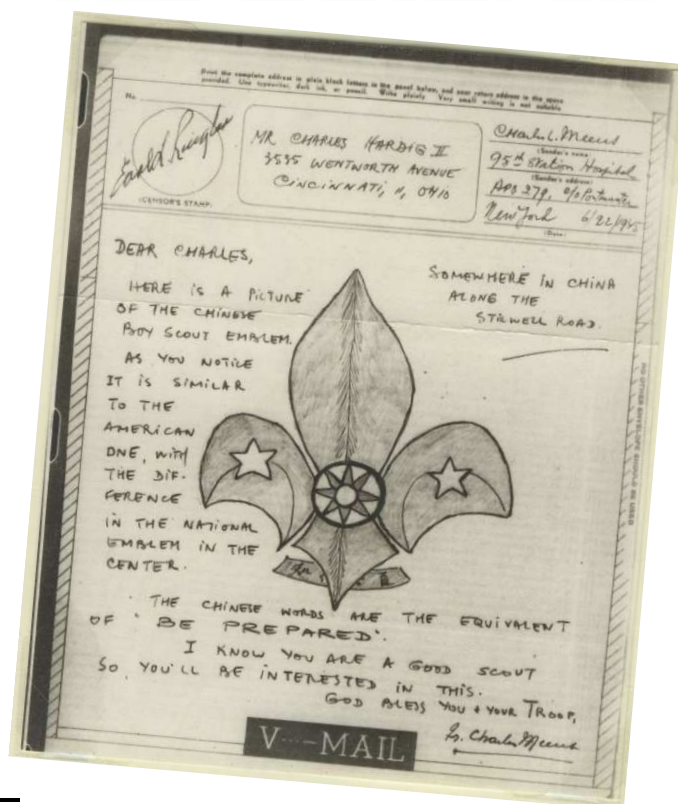 Print the complete address in plain block letters in the panel below, and your return address in the space
provided. Use typewriter, dark ink, or pencil. Write plainly. Very small writing is not suitable.
No.
(CENSOR'S STAMP)
MR CHARLES HARDIG II
3535 WENTWORTH AVENUE
CINCINNATI, 11, OHIO
Charles L. Meeus
(Sender's name)
95th Station Hospital
(Sender's address)
APO 279, c/o Postmaster
New York 6/22/1945
(Date)
DEAR CHARLES,
SOMEWHERE IN CHINA
ALONG THE
STILWELL ROAD.
HERE IS A PICTURE
OF THE CHINESE
BOY SCOUT EMBLEM.
AS YOU NOTICE
IT IS SIMILAR
TO THE
AMERICAN
ONE, WITH
THE DIF-
FERENCE
IN THE NATIONAL
EMBLEM IN THE
CENTER.
THE CHINESE WORDS ARE THE EQUIVALENT
OF "BE PREPARED".
I KNOW YOU ARE A GOOD SCOUT
SO, YOU'LL BE INTERESTED IN THIS.
GOD BLESS YOU + YOUR TROOP,
Fr. Charles Meeus
V···—MAIL
NO OTHER ENVELOPE SHOULD BE USED